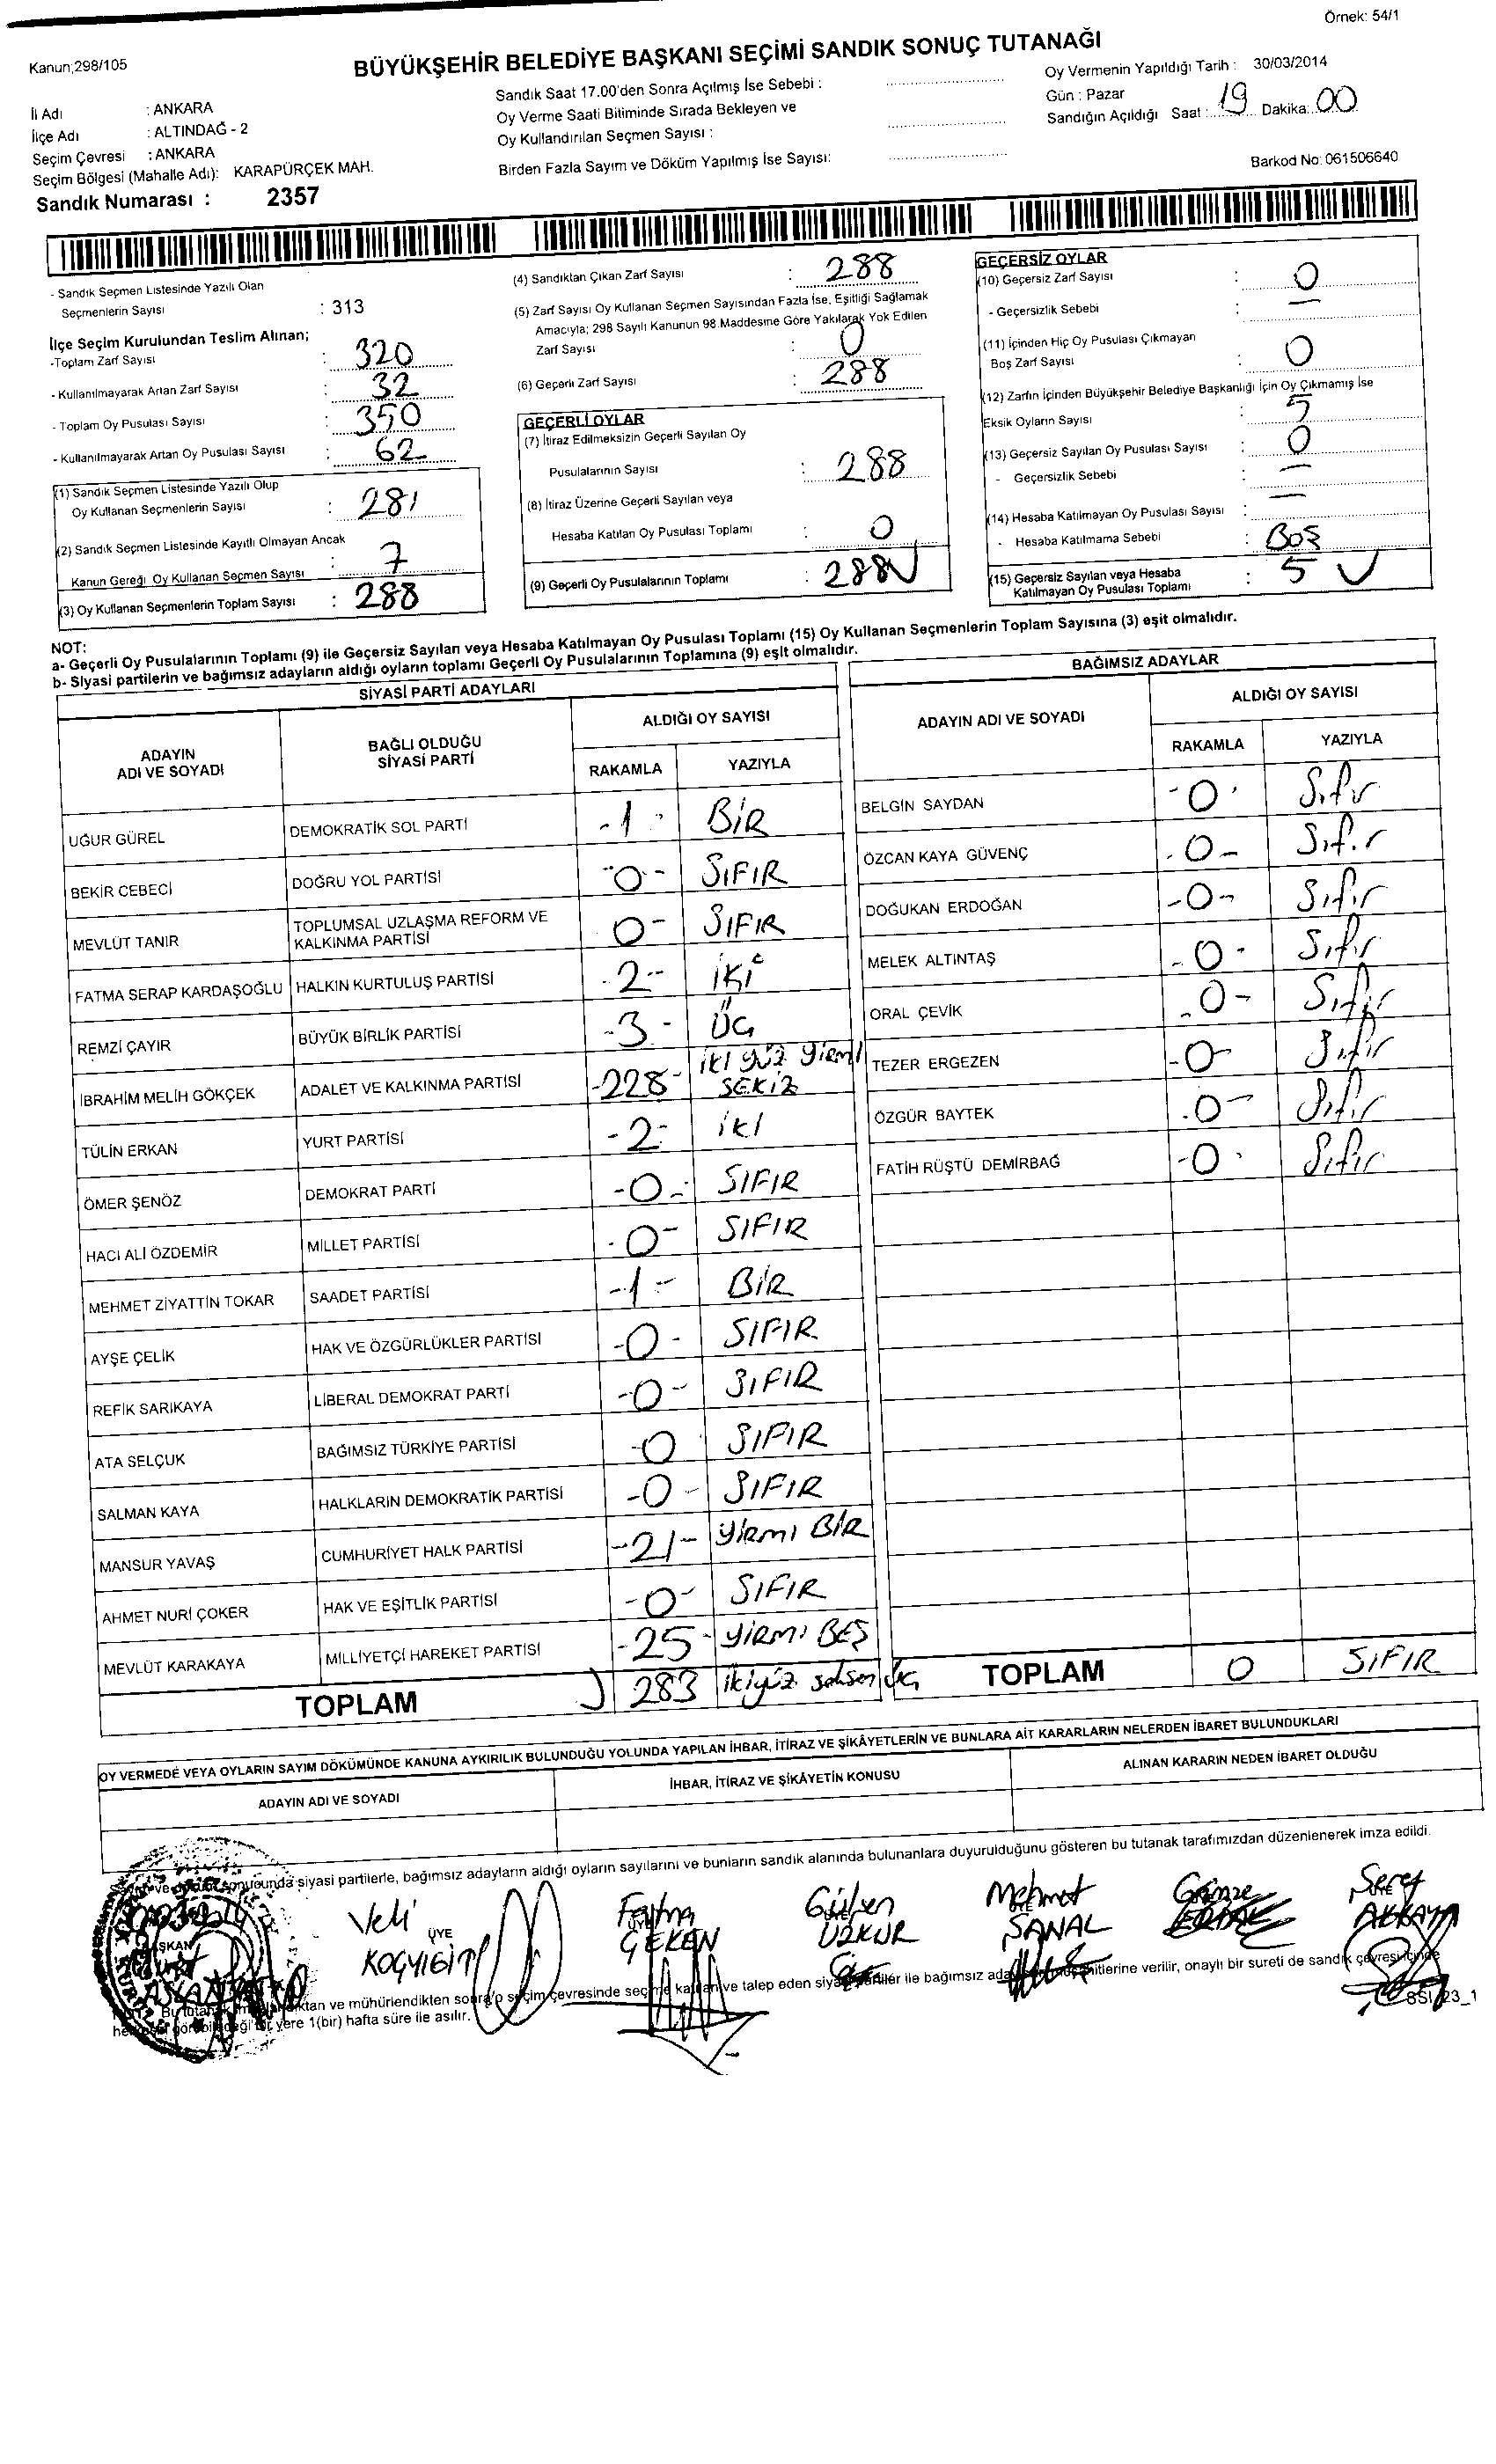 Örnek: 54/1
Kanun;298/105
BÜYÜKŞEHİR BELEDİYE BAŞKANI SEÇİMİ SANDIK SONUÇ TUTANAĞI
İl Adı : ANKARA
İlçe Adı : ALTINDAĞ - 2
Seçim Çevresi : ANKARA
Seçim Bölgesi (Mahalle Adı): KARAPÜRÇEK MAH.
Sandık Numarası : 2357
Sandık Saat 17.00'den Sonra Açılmış İse Sebebi :
Oy Verme Saati Bitiminde Sırada Bekleyen ve
Oy Kullandırılan Seçmen Sayısı :
Birden Fazla Sayım ve Döküm Yapılmış İse Sayısı:
Oy Vermenin Yapıldığı Tarih : 30/03/2014
Gün : Pazar
Sandığın Açıldığı Saat : 19 Dakika: 00
Barkod No: 061506640
- Sandık Seçmen Listesinde Yazılı Olan
Seçmenlerin Sayısı : 313
İlçe Seçim Kurulundan Teslim Alınan;
-Toplam Zarf Sayısı : 320
- Kullanılmayarak Artan Zarf Sayısı : 32
- Toplam Oy Pusulası Sayısı : 350
- Kullanılmayarak Artan Oy Pusulası Sayısı : 62
(1) Sandık Seçmen Listesinde Yazılı Olup
Oy Kullanan Seçmenlerin Sayısı : 281
(2) Sandık Seçmen Listesinde Kayıtlı Olmayan Ancak
Kanun Gereği Oy Kullanan Seçmen Sayısı : 7
(3) Oy Kullanan Seçmenlerin Toplam Sayısı : 288
(4) Sandıktan Çıkan Zarf Sayısı : 288
(5) Zarf Sayısı Oy Kullanan Seçmen Sayısından Fazla İse, Eşitliği Sağlamak
Amacıyla; 298 Sayılı Kanunun 98.Maddesine Göre Yakılarak Yok Edilen
Zarf Sayısı : 0
(6) Geçerli Zarf Sayısı : 288
GEÇERLİ OYLAR
(7) İtiraz Edilmeksizin Geçerli Sayılan Oy
Pusulalarının Sayısı : 288
(8) İtiraz Üzerine Geçerli Sayılan veya
Hesaba Katılan Oy Pusulası Toplamı : 0
(9) Geçerli Oy Pusulalarının Toplamı : 288
GEÇERSİZ OYLAR
(10) Geçersiz Zarf Sayısı : 0
- Geçersizlik Sebebi : —
(11) İçinden Hiç Oy Pusulası Çıkmayan
Boş Zarf Sayısı : 0
(12) Zarfın İçinden Büyükşehir Belediye Başkanlığı İçin Oy Çıkmamış İse
Eksik Oyların Sayısı : 5
(13) Geçersiz Sayılan Oy Pusulası Sayısı : 0
- Geçersizlik Sebebi : —
(14) Hesaba Katılmayan Oy Pusulası Sayısı : —
- Hesaba Katılmama Sebebi : BOŞ
(15) Geçersiz Sayılan veya Hesaba
Katılmayan Oy Pusulası Toplamı : 5
NOT:
a- Geçerli Oy Pusulalarının Toplamı (9) ile Geçersiz Sayılan veya Hesaba Katılmayan Oy Pusulası Toplamı (15) Oy Kullanan Seçmenlerin Toplam Sayısına (3) eşit olmalıdır.
b- Siyasi partilerin ve bağımsız adayların aldığı oyların toplamı Geçerli Oy Pusulalarının Toplamına (9) eşit olmalıdır.
SİYASİ PARTİ ADAYLARI
ADAYIN ADI VE SOYADI BAĞLI OLDUĞU SİYASİ PARTİ ALDIĞI OY SAYISI
RAKAMLA YAZIYLA
UĞUR GÜREL DEMOKRATİK SOL PARTİ -1- BİR
BEKİR CEBECİ DOĞRU YOL PARTİSİ -0- SIFIR
MEVLÜT TANIR TOPLUMSAL UZLAŞMA REFORM VE KALKINMA PARTİSİ 0- SIFIR
FATMA SERAP KARDAŞOĞLU HALKIN KURTULUŞ PARTİSİ -2- İKİ
REMZİ ÇAYIR BÜYÜK BİRLİK PARTİSİ -3- ÜÇ
İBRAHİM MELİH GÖKÇEK ADALET VE KALKINMA PARTİSİ -228- İKİ YÜZ YİRMİ SEKİZ
TÜLİN ERKAN YURT PARTİSİ -2- İKİ
ÖMER ŞENÖZ DEMOKRAT PARTİ -0- SIFIR
HACI ALİ ÖZDEMİR MİLLET PARTİSİ -0- SIFIR
MEHMET ZİYATTİN TOKAR SAADET PARTİSİ -1- BİR
AYŞE ÇELİK HAK VE ÖZGÜRLÜKLER PARTİSİ -0- SIFIR
REFİK SARIKAYA LİBERAL DEMOKRAT PARTİ -0- SIFIR
ATA SELÇUK BAĞIMSIZ TÜRKİYE PARTİSİ -0 SIFIR
SALMAN KAYA HALKLARIN DEMOKRATİK PARTİSİ -0- SIFIR
MANSUR YAVAŞ CUMHURİYET HALK PARTİSİ -21- YİRMİ BİR
AHMET NURİ ÇOKER HAK VE EŞİTLİK PARTİSİ -0- SIFIR
MEVLÜT KARAKAYA MİLLİYETÇİ HAREKET PARTİSİ -25- YİRMİ BEŞ
TOPLAM 283 ikiyüz seksen üç
BAĞIMSIZ ADAYLAR
ADAYIN ADI VE SOYADI ALDIĞI OY SAYISI
RAKAMLA YAZIYLA
BELGİN SAYDAN -0- Sıfır
ÖZCAN KAYA GÜVENÇ -0- Sıfır
DOĞUKAN ERDOĞAN -0- Sıfır
MELEK ALTINTAŞ -0- Sıfır
ORAL ÇEVİK -0- Sıfır
TEZER ERGEZEN -0- Sıfır
ÖZGÜR BAYTEK -0- Sıfır
FATİH RÜŞTÜ DEMİRBAĞ -0- Sıfır
TOPLAM 0 SIFIR
OY VERMEDE VEYA OYLARIN SAYIM DÖKÜMÜNDE KANUNA AYKIRILIK BULUNDUĞU YOLUNDA YAPILAN İHBAR, İTİRAZ VE ŞİKÂYETLERİN VE BUNLARA AİT KARARLARIN NELERDEN İBARET BULUNDUKLARI
ADAYIN ADI VE SOYADI İHBAR, İTİRAZ VE ŞİKÂYETİN KONUSU ALINAN KARARIN NEDEN İBARET OLDUĞU
sonucunda siyasi partilerle, bağımsız adayların aldığı oyların sayılarını ve bunların sandık alanında bulunanlara duyurulduğunu gösteren bu tutanak tarafımızdan düzenlenerek imza edildi.
Veli Fatma Gülsen Mehmet Gamze Seref
ÜYE
KOÇYIGIT GEKEN ÜZKUR SANAL AKKAYA
ve talep eden ile bağımsız verilir, onaylı bir sureti de sandık çevresi içinde
yere 1(bir) hafta süre ile asılır.